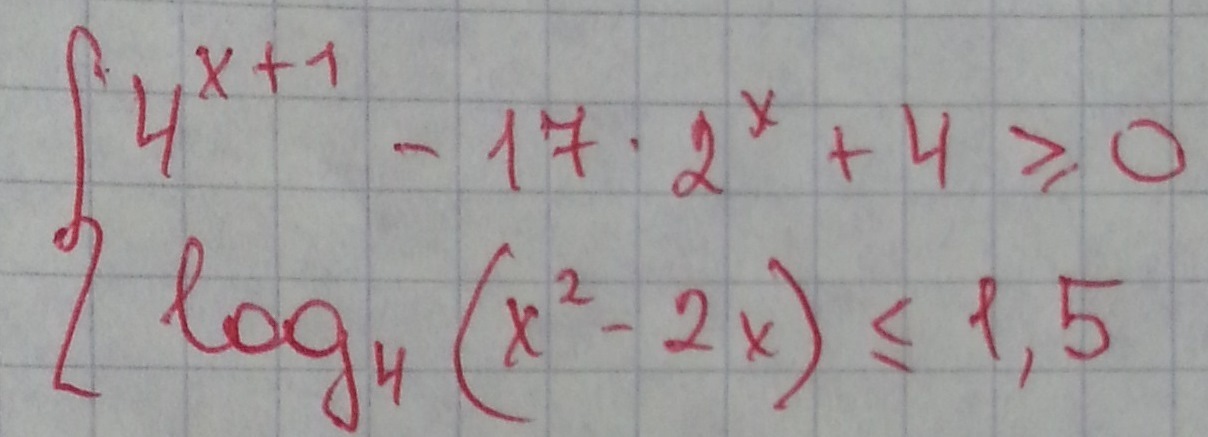 4^{x+1} - 17 · 2^x + 4 ≥ 0
log_4 (x^2 - 2x) ≤ 1,5